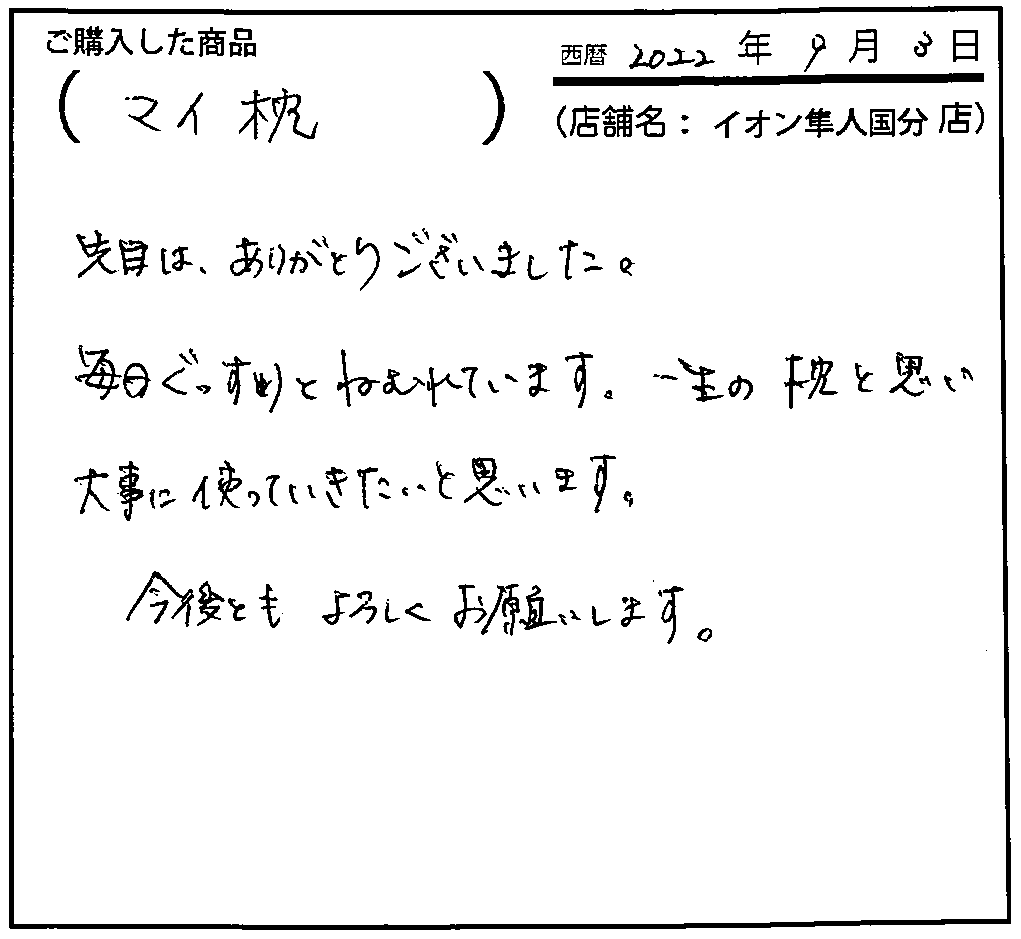 ご購入した商品
西暦 2022 年 9 月 3 日
( マイ 枕 )
(店舗名: イオン隼人国分 店)
先日は、ありがとうございました。
毎日ぐっすりとねむれています。一生の枕と思い
大事に使っていきたいと思います。
今後とも よろしくお願いします。